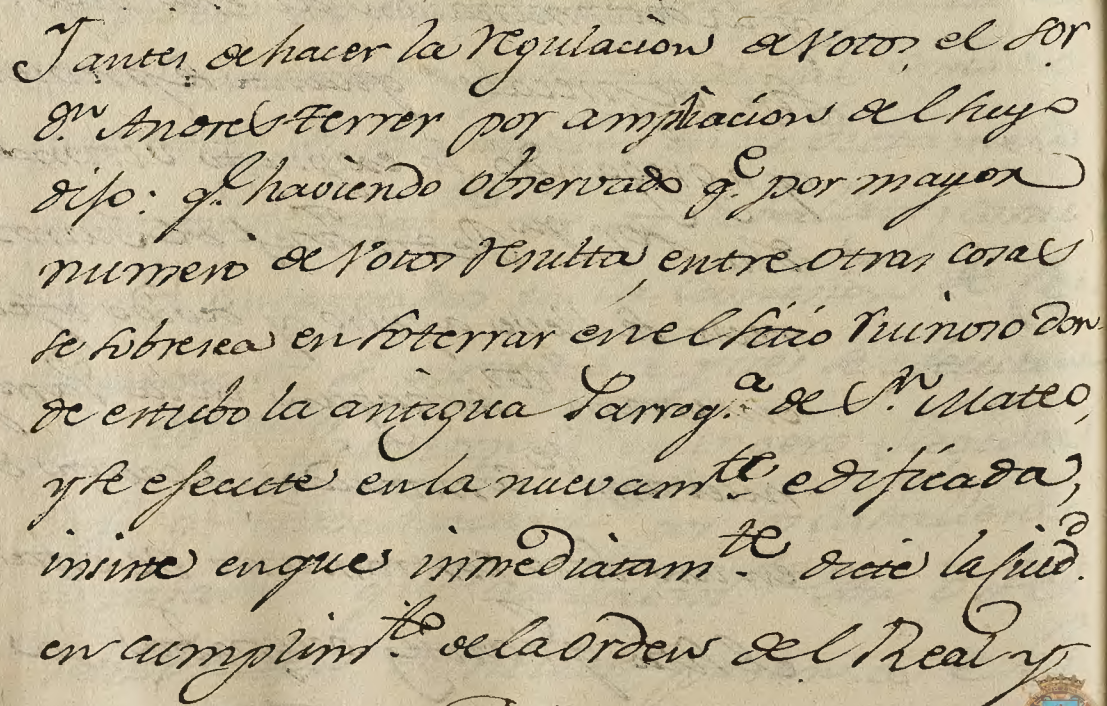 Y antes de hacer la regulacion de votos, el Sor.
Dn. Andres Ferrer por ampliacion del suyo
dijo: q.e haviendo observado q.e por mayor
numero de votos resulta, entre otras cosas
se sobresea en soterrar en el sitio ruinoso don-
de estubo la antigua Parroq.a de Sn. Mateo,
y se efecute en la nuevam.te edificada,
insiste en que inmediatam.te dicte la Ciud.d
en cumplim.to de la orden del Real y